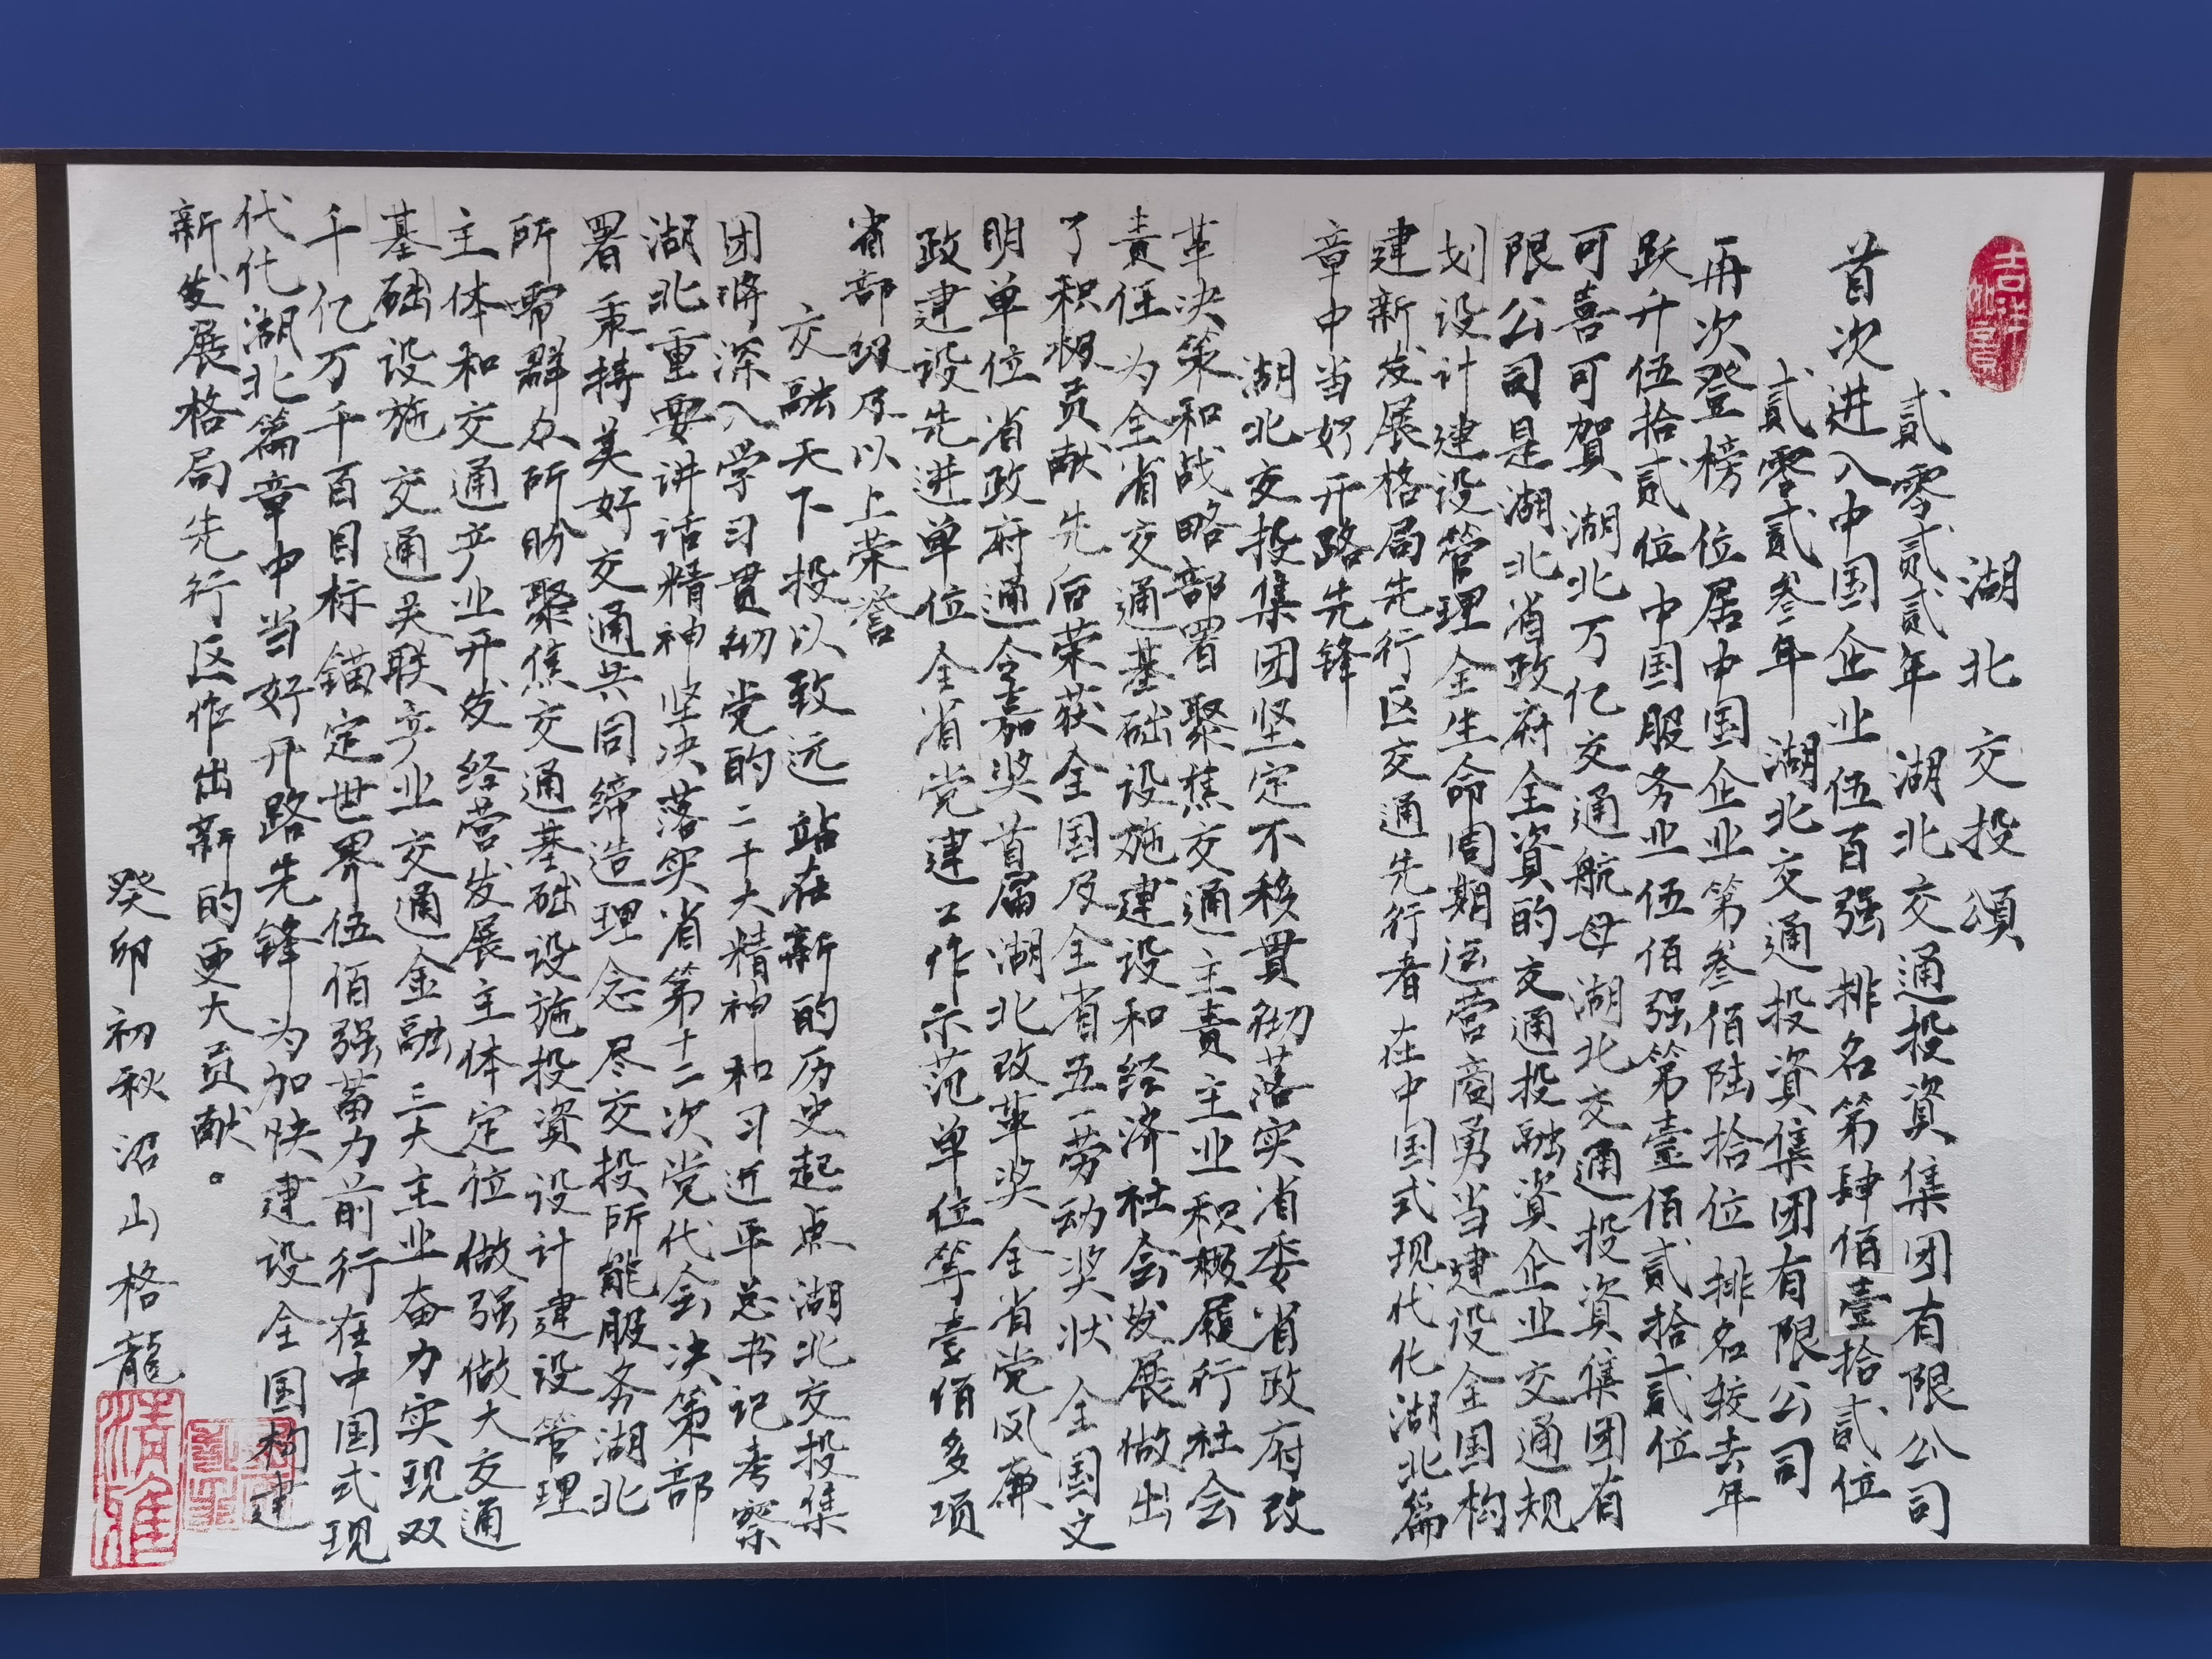 吉祥如意
湖北交投頌
貳零贰贰年 湖北交通投資集团有限公司
首次进入中国企业伍百强 排名第肆佰壹拾貳位
貳零貳叁年 湖北交通投資集团有限公司
再次登榜 位居中国企业第叁佰陆拾位 排名较去年
跃升伍拾贰位 中国服务业伍佰强第壹佰贰拾贰位
可喜可賀 湖北万亿交通航母 湖北交通投資集团有
限公司是湖北省政府全資的交通投融資企业 交通规
划设计建设管理全生命周期运营商 勇当建设全国构
建新发展格局先行区交通先行者 在中国式现代化湖北篇
章中当好开路先锋
湖北交投集团坚定不移贯彻落实省委省政府改
革决策和战略部署 聚焦交通主责主业 积极履行社会
责任 为全省交通基础设施建设和经济社会发展做出
了积极贡献 先后荣获全国及全省五一劳动奖状 全国文
明单位 省政府通令嘉奖 首届湖北改革奖 全省党风廉
政建设先进单位 全省党建工作示范单位等壹佰多项
省部级及以上荣誉
交融天下 投以致远 站在新的历史起点 湖北交投集
团将深入学习贯彻党的二十大精神和习近平总书记考察
湖北重要讲话精神 坚决落实省第十二次党代会决策部
署 秉持美好交通共同缔造理念 尽交投所能 服务湖北
所需 群众所盼 聚焦交通基础设施投資设计建设管理
主体和交通产业开发经营发展主体定位 做强做大交通
基础设施 交通关联产业 交通金融三大主业 奋力实现双
千亿万千百目标 锚定世界伍佰强蓄力前行 在中国式现
代化湖北篇章中当好开路先锋 为加快建设全国构建
新发展格局先行区作出新的更大贡献。
癸卯初秋沼山格龍
清雅